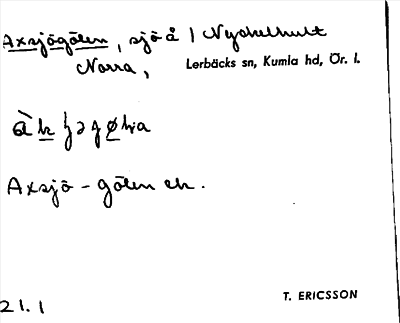 Axsjögölen, sjö å 1 Nyckelhult
Norra, Lerbäcks sn, Kumla hd, Ör. l.
Axsjö - gölen ek.
21.1
T. ERICSSON